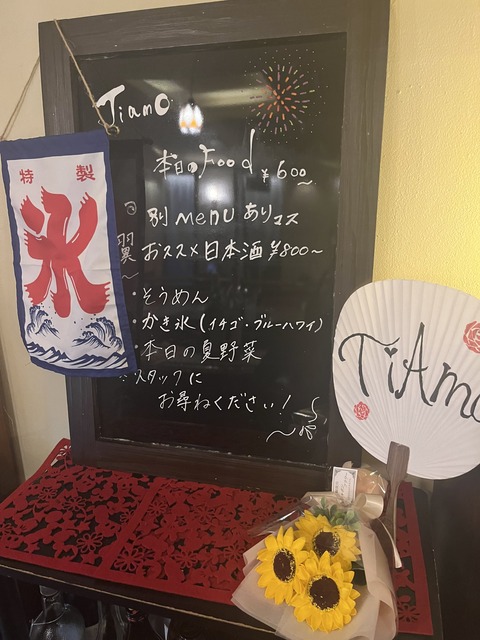 Tiamo
本日のFood ¥600~
特製
氷
別menuありマス
おススメ日本酒 ¥800~
・そうめん
・かき氷(イチゴ・ブルーハワイ)
・本日の夏野菜
スタッフに
お尋ねください!
TiAmo